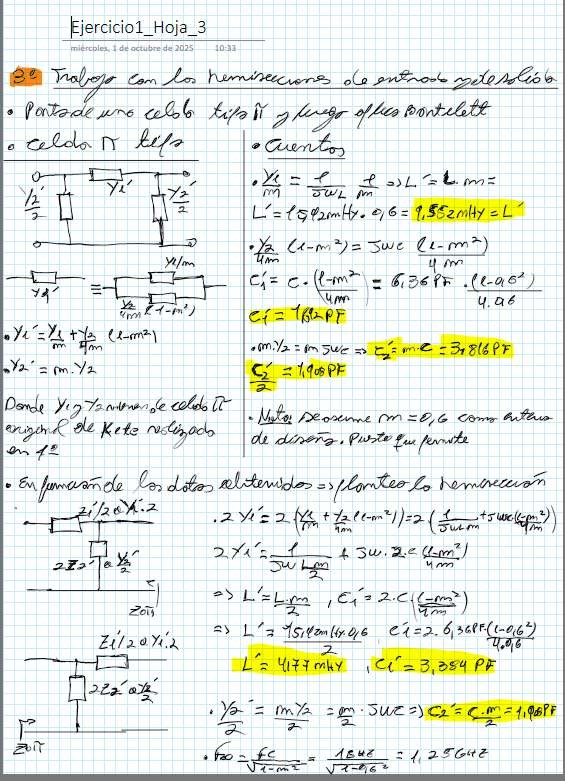 Ejercicio1_Hoja_3
miércoles, 1 de octubre de 2025 10:33
3º Trabajo con las hemisecciones de entrada y de salida
• Parto de una celda tipo π y luego aplico Bartlett
• Celda π tipo
Y1'
Y2'/2
Y2'/2
Y1/m
Y1' ≡
Y2/4m (1-m²)
• Y1' = Y1/m + Y2/4m (1-m²)
• Y2' = m·Y2
Donde Y1 y Y2 de celda π
original de realizado
en 1º
• Cuentas
• Y1/m = 1/JWL 1/m => L' = L·m =
L' = 15,92mHy · 0,6 = 9,552mHy = L'
• Y2/4m (1-m²) = JWC (1-m²)/4m
C1' = C·(1-m²)/4m = 6,36PF · (1-0,6²)/4·0,6
C1' = PF
• m·Y2 = m JWC => C2' = m·C = 3,816PF
C2'/2 = 1,908PF
• Nota: Se asume m = 0,6 como
de diseño. Puesto que permite
• En función de los datos obtenidos => planteo la hemisección
Z1'/2 o Y1'·2
2Z2' o Y2'/2
Zoiπ
• 2Y1' = 2(Y1/m + Y2/4m (1-m²)) = 2(1/JWLm + JWC(1-m²)/4m)
2Y1' = 1/(JW Lm/2) + JW·2·C (1-m²)/4m
=> L' = L·m/2 , C1' = 2·C (1-m²)/4m
=> L' = 15,92mHy·0,6/2 , C1' = 2·6,36PF(1-0,6²)/4·0,6
L' = 4,77mHy , C1' = 3,384PF
Z1'/2 o Y1'·2
2Z2' o Y2'/2
Zoiπ
• Y2'/2 = m·Y2/2 = m/2 · JWC => C2' = C·m/2 = 1,908PF
• F∞ = fc/√(1-m²) = 1GHz/√(1-0,6²) = 1,25GHz